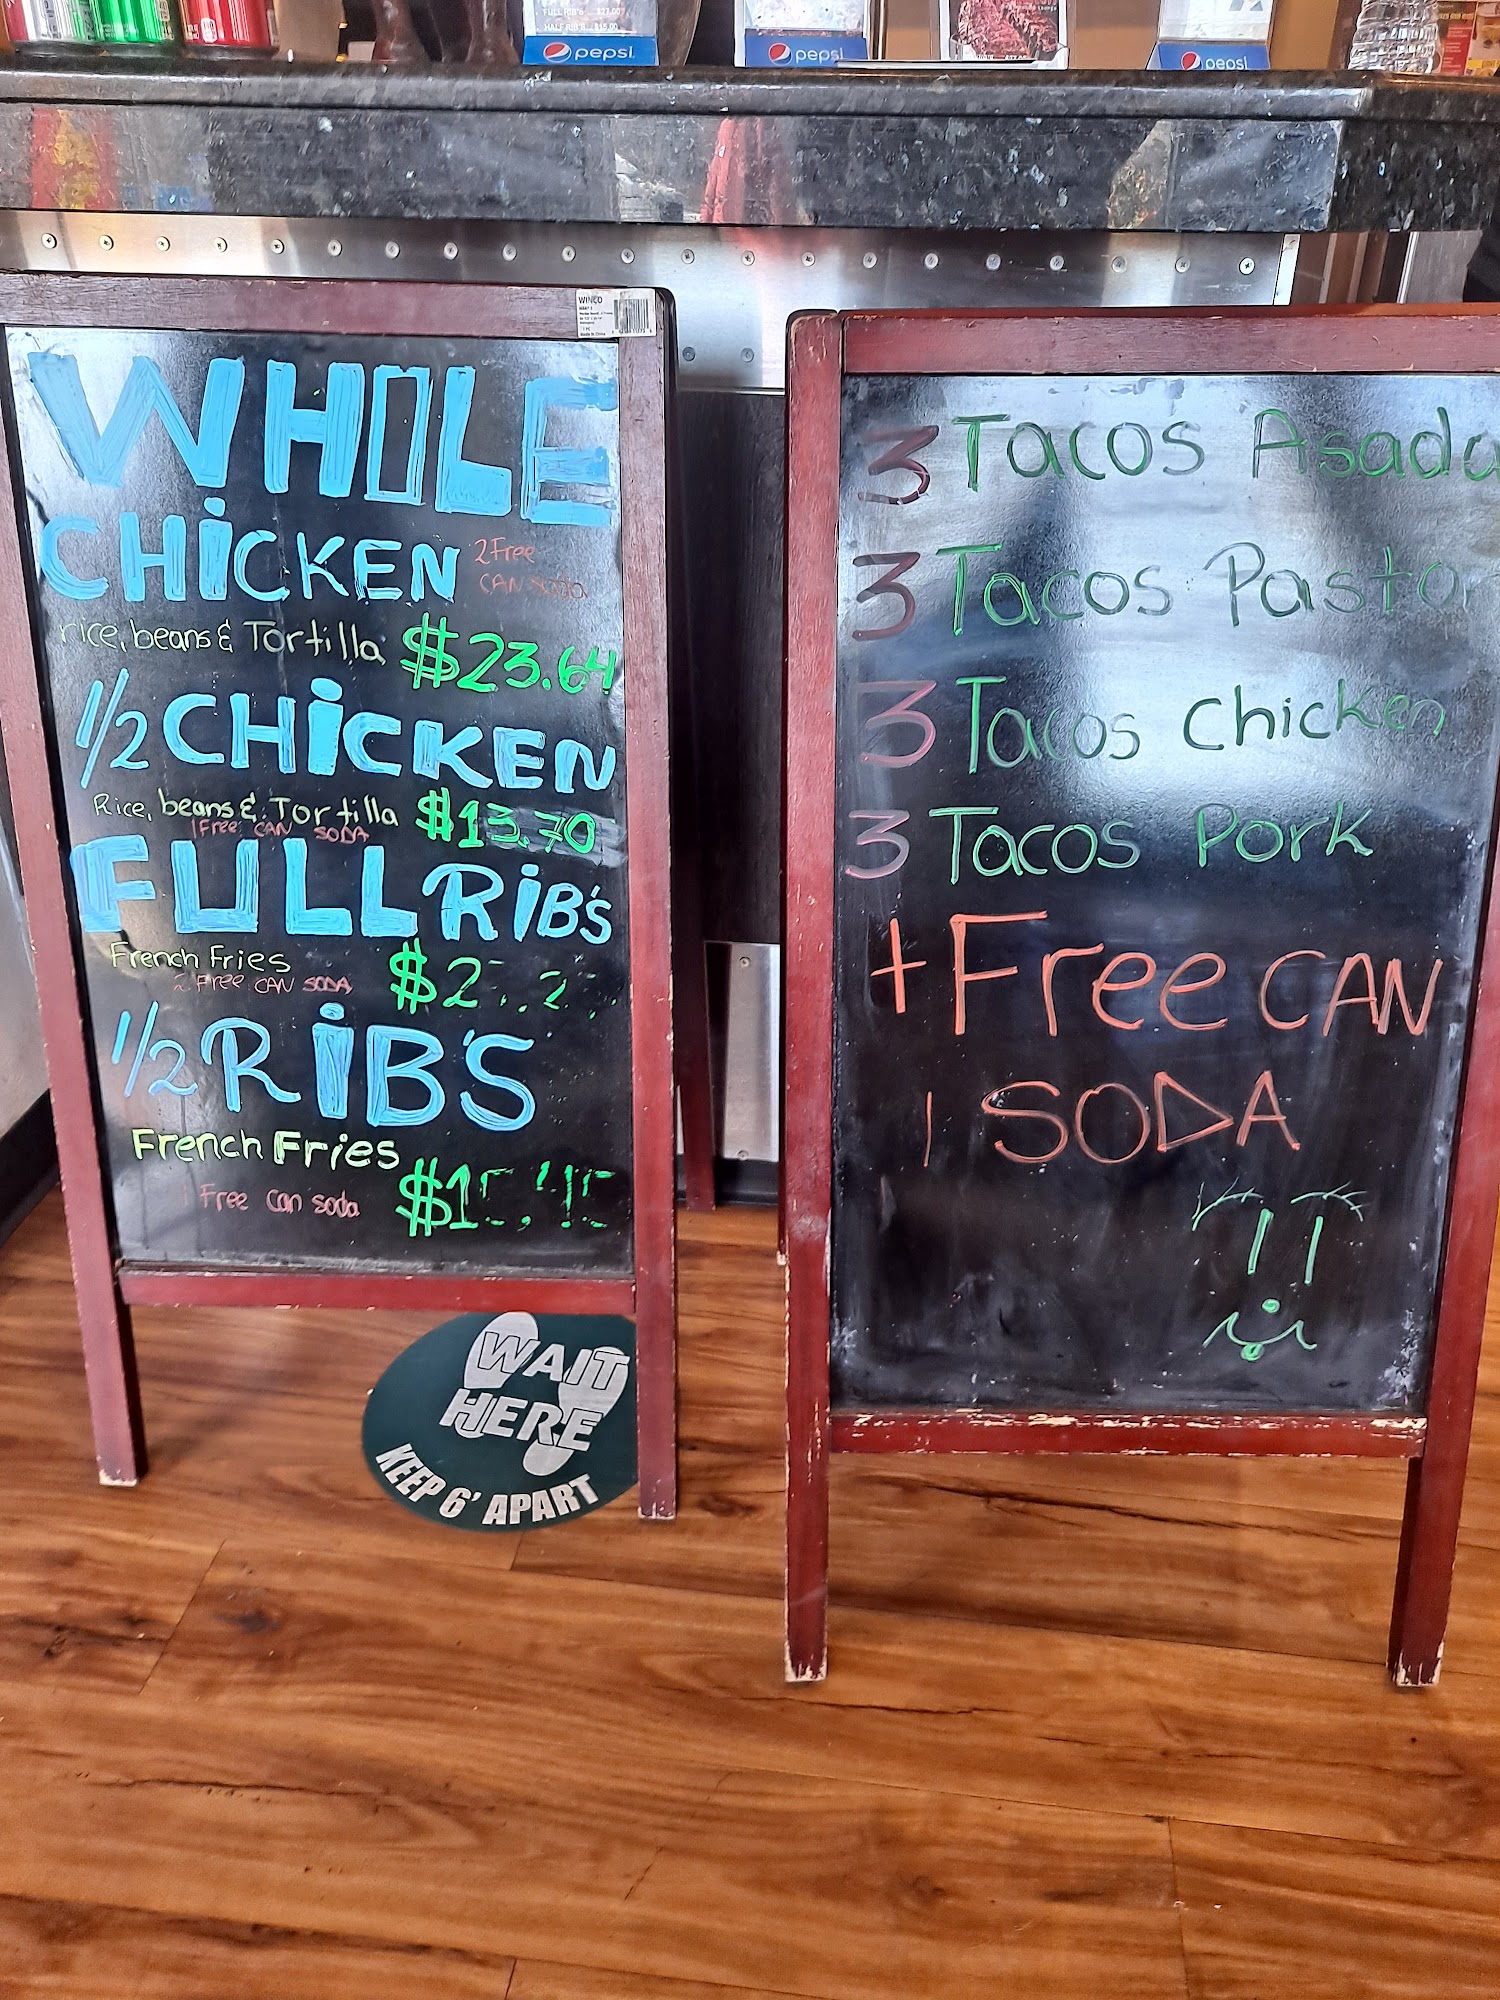 FULL RIB'S ... $27.00
HALF RIB'S ... $15.00
pepsi
pepsi
pepsi
WINCO
Made In China
WHOLE
CHiCKEN
2 Free
CAN soda
rice, beans & Tortilla $23.64
1/2 CHiCKEN
Rice, beans & Tortilla $13.70
1 Free CAN SODA
FULL RiB'S
French Fries
2 Free CAN SODA
1/2 RiB'S
French Fries
1 Free Can Soda
3 Tacos Asada
3 Tacos Pastor
3 Tacos Chicken
3 Tacos Pork
+ Free CAN
1 SODA
WAIT
HERE
KEEP 6' APART